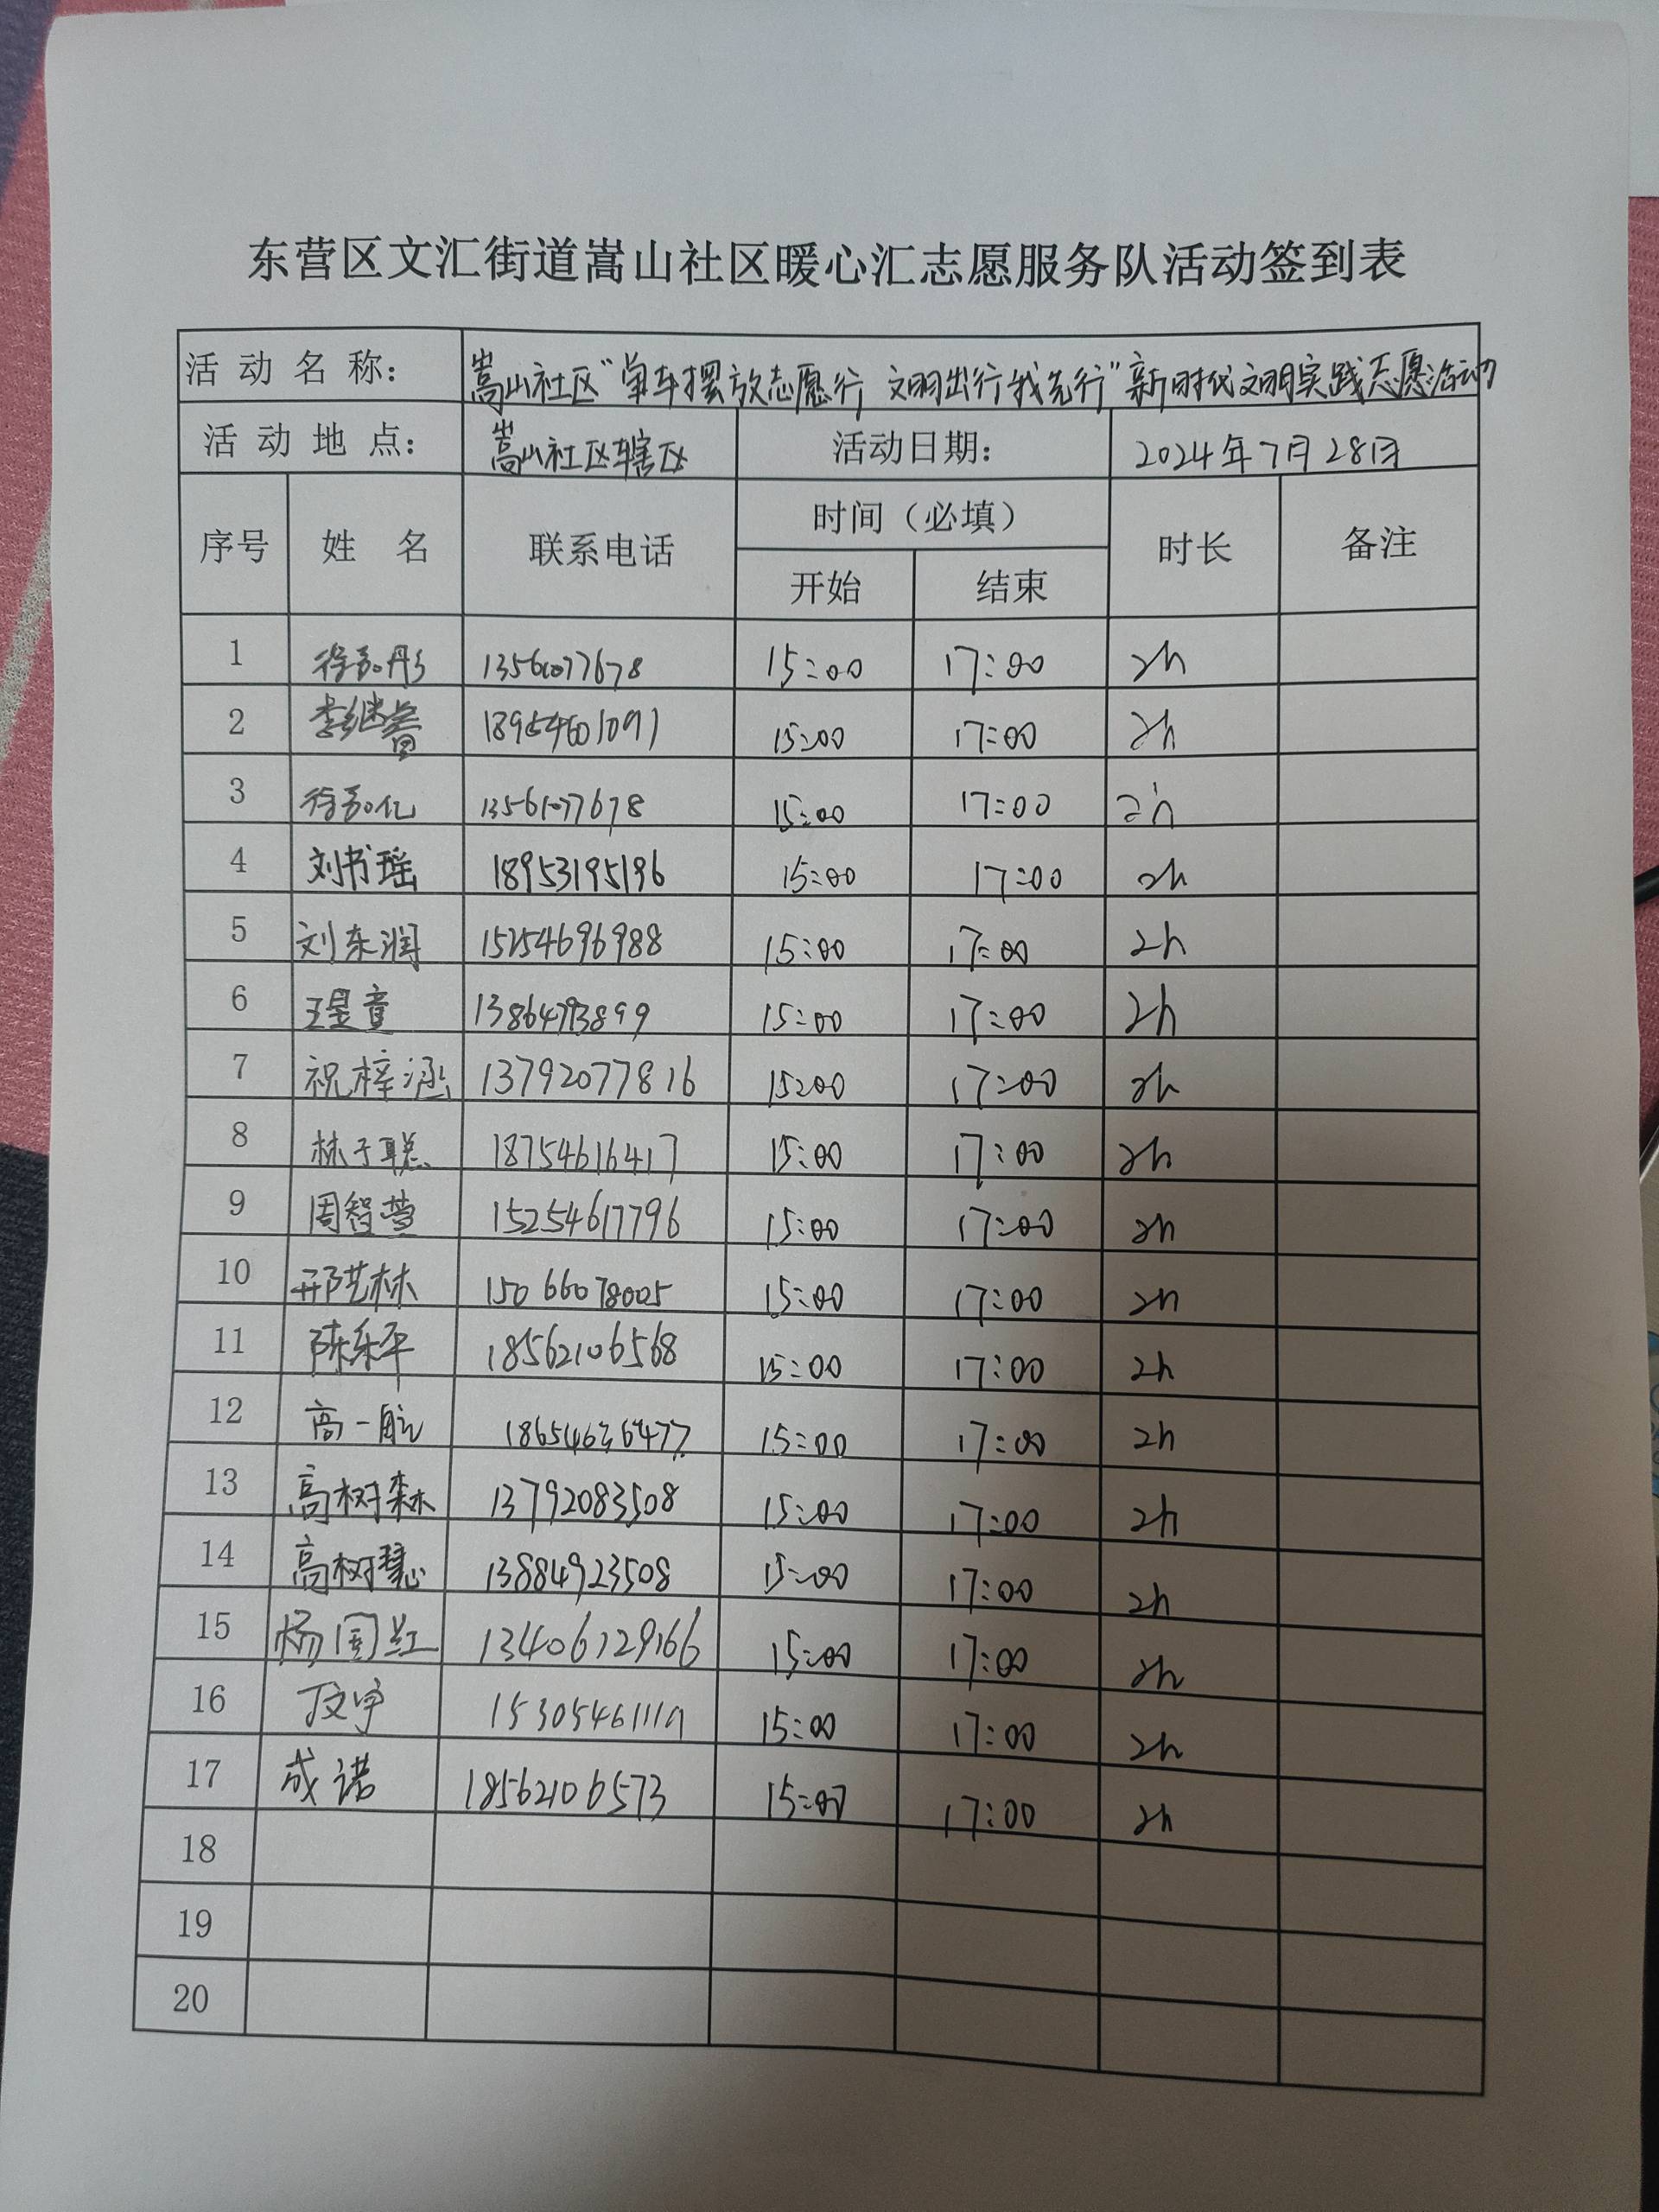 东营区文汇街道嵩山社区暖心汇志愿服务队活动签到表
活动名称： 嵩山社区“单车摆放志愿行 文明出行我先行”新时代文明实践志愿活动
活动地点： 嵩山社区辖区 活动日期： 2024年7月28日
序号 姓 名 联系电话 时间（必填） 时长 备注
开始 结束
1 徐弘彤 13561077678 15:00 17:00 2h
2 李继蕾 18954601091 15:00 17:00 2h
3 徐弘亿 13561077678 15:00 17:00 2h
4 刘书瑶 18953195196 15:00 17:00 2h
5 刘东润 15254696988 15:00 17:00 2h
6 王昱童 15:00 17:00 2h
7 祝梓涵 13792077816 15:00 17:00 2h
8 林子聪 18754616417 15:00 17:00 2h
9 周智萱 15254617796 15:00 17:00 2h
10 邢艺林 15066078005 15:00 17:00 2h
11 陈乐平 18562106568 15:00 17:00 2h
12 高一航 15:00 17:00 2h
13 高树森 13792083508 15:00 17:00 2h
14 高树慧 13884923508 15:00 17:00 2h
15 杨国红 13406129166 15:00 17:00 2h
16 丁文宇 15:00 17:00 2h
17 成诺 18562106573 15:00 17:00 2h
18
19
20